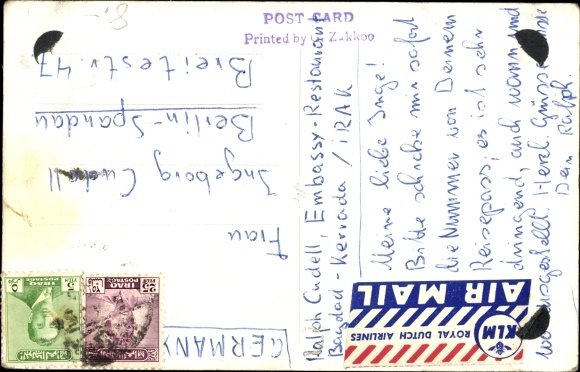 POST CARD
Printed by G. Zakkoo
Ralph Cudell, Embassy-Restaurant
Bagdad-Kerrada / IRAK
Meine liebe Inge!
Bitte schreibe mir sofort
die Nummer von Deinem
Reisepass, es ist sehr
dringend, auch wann und
wo ausgestellt. Herzl. Grüsse
Dein Ralph.
Frau
Ingeborg Cudell
Berlin-Spandau
Breitestr. 47
GERMANY
AIR MAIL
KLM
ROYAL DUTCH AIRLINES
IRAQ
POSTAGE
5
FILS
IRAQ
POSTAGE
25
FILS